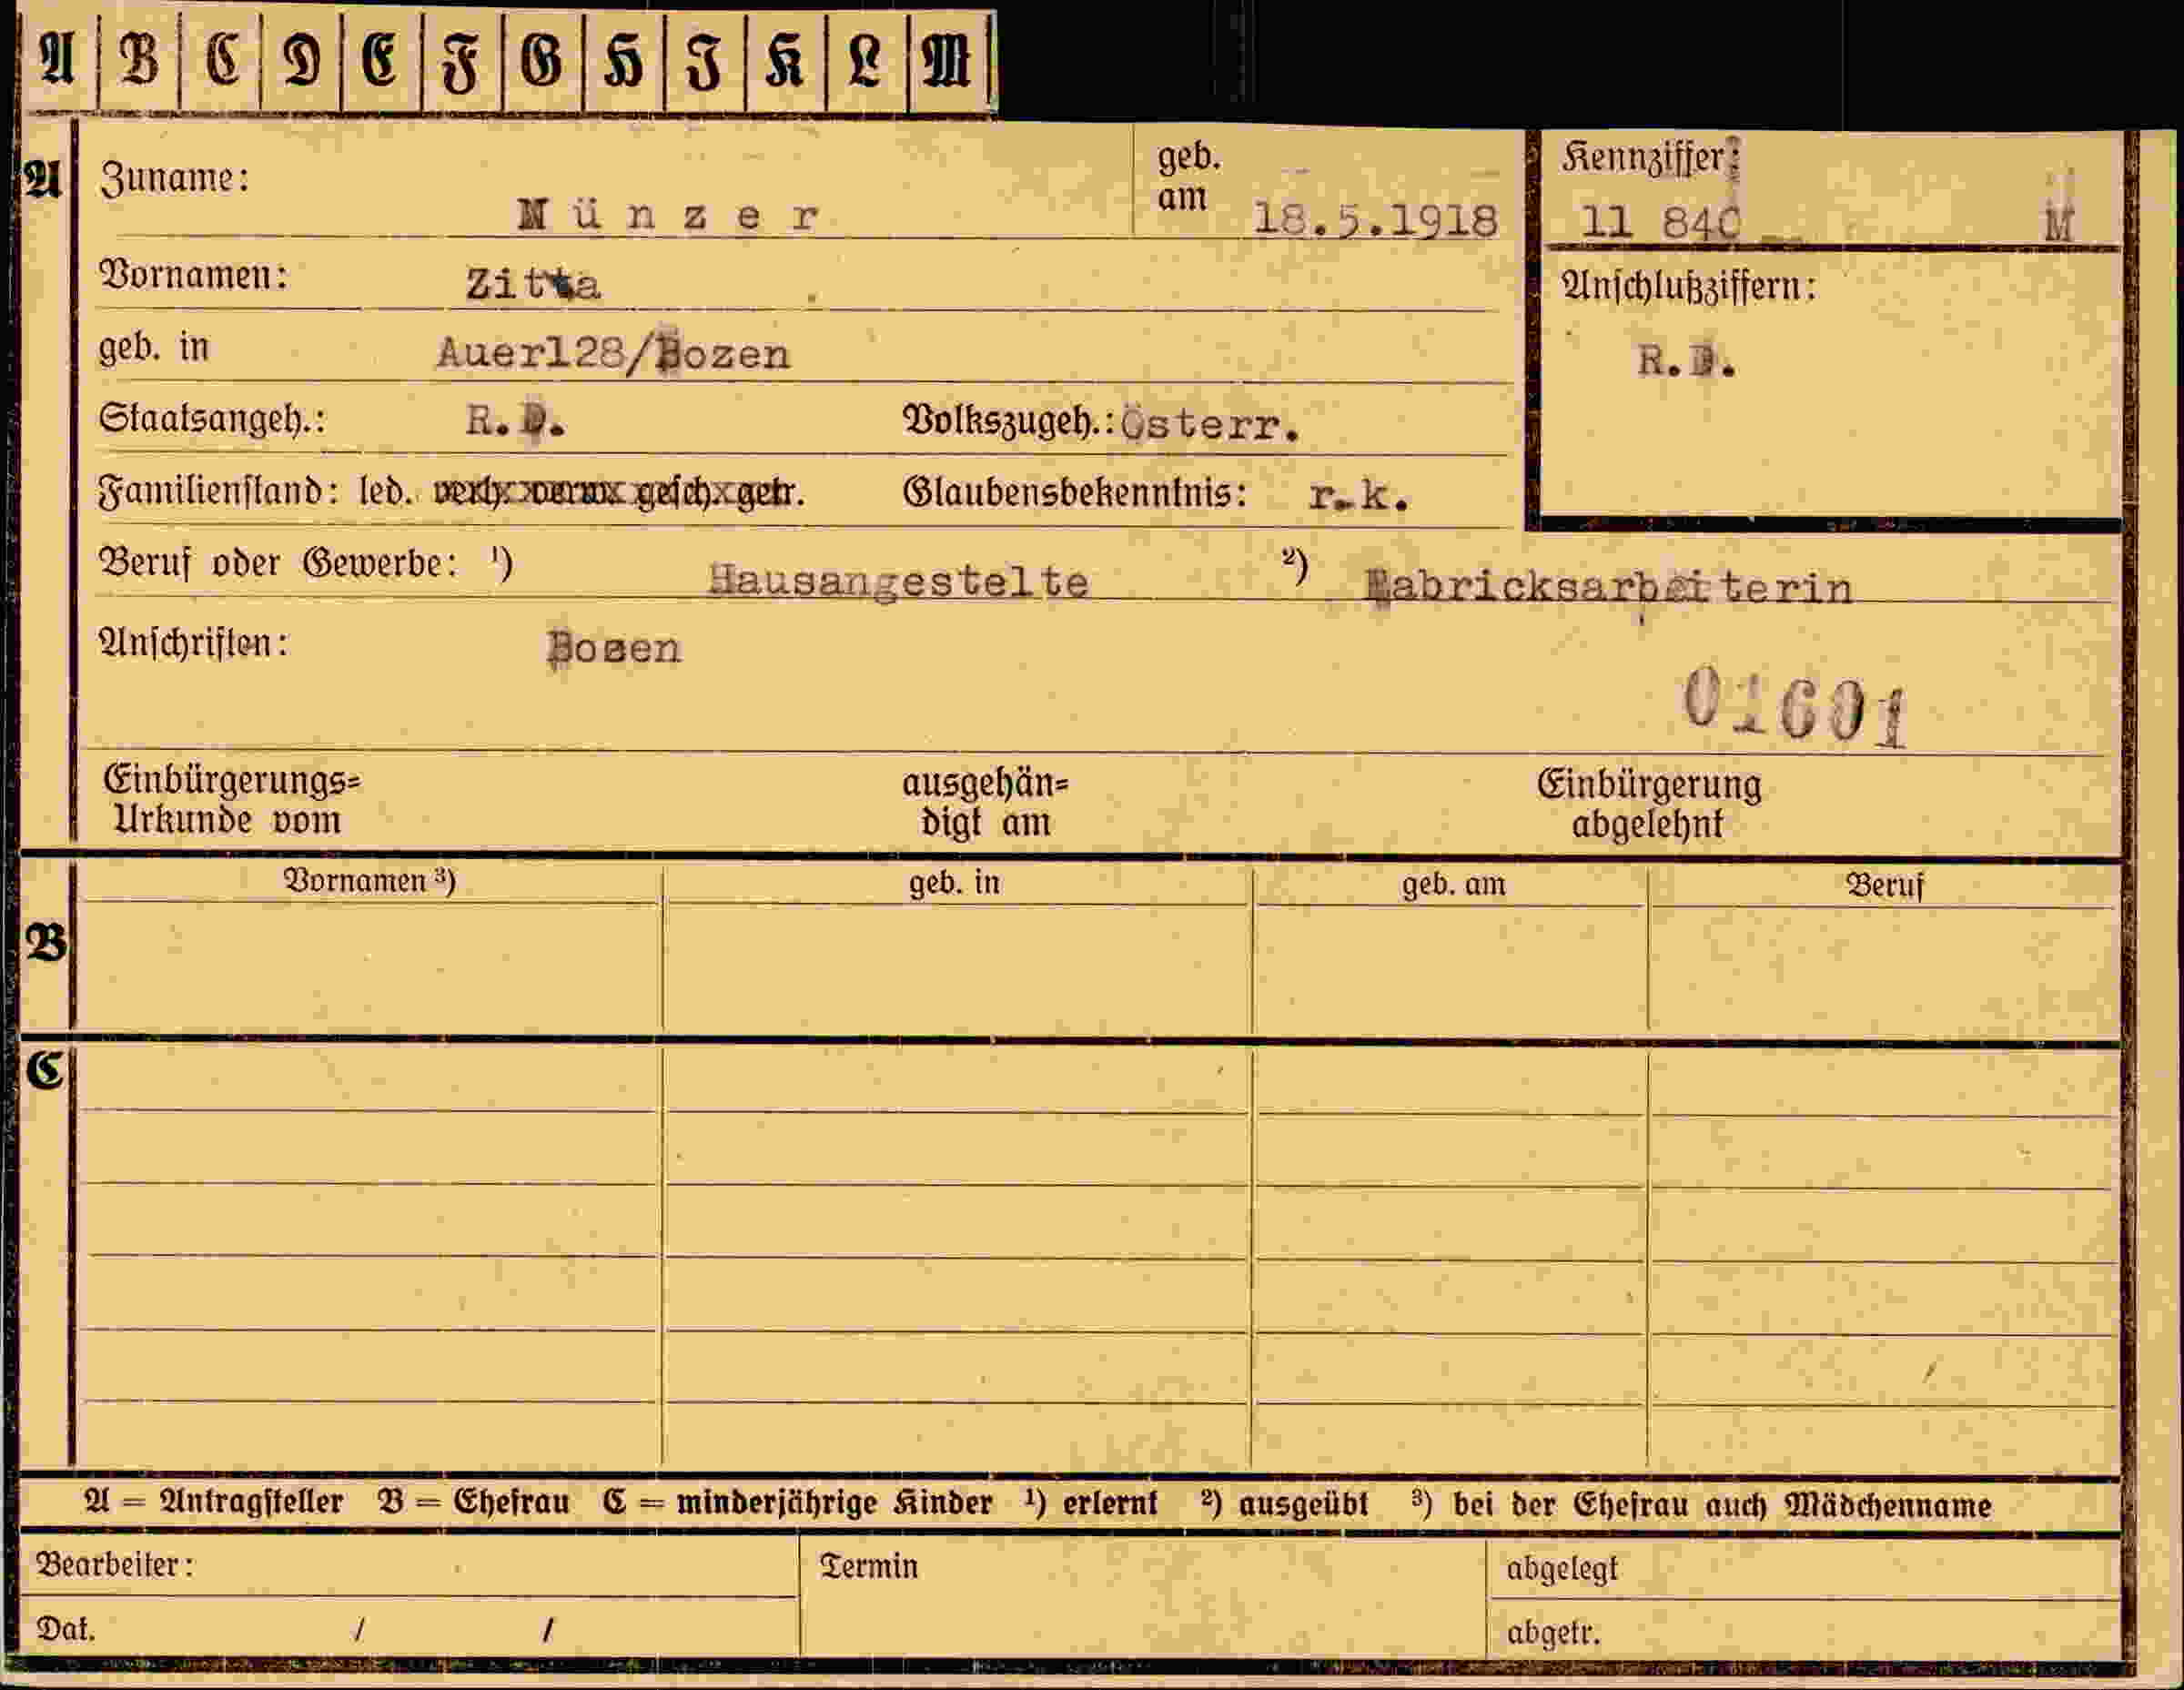 A B C D E F G H I K L M
A Zuname: Münzer geb. am 18.5.1918 Kennziffer: 11 840 M
Vornamen: Zitta Anschlußziffern:
geb. in Auer128/Bozen R.D.
Staatsangeh.: R.D. Volkszugeh.: Österr.
Familienstand: led. verh. verw. gesch. getr. Glaubensbekenntnis: r.k.
Beruf oder Gewerbe: ¹) Hausangestelte ²) Fabricksarbeiterin
Anschriften: Bozen
01601
Einbürgerungs= ausgehän= Einbürgerung
Urkunde vom digt am abgelehnt
Vornamen ³) geb. in geb. am Beruf
B
C
A = Antragsteller B = Ehefrau C = minderjährige Kinder ¹) erlernt ²) ausgeübt ³) bei der Ehefrau auch Mädchenname
Bearbeiter: Termin abgelegt
Dat. / / abgetr.